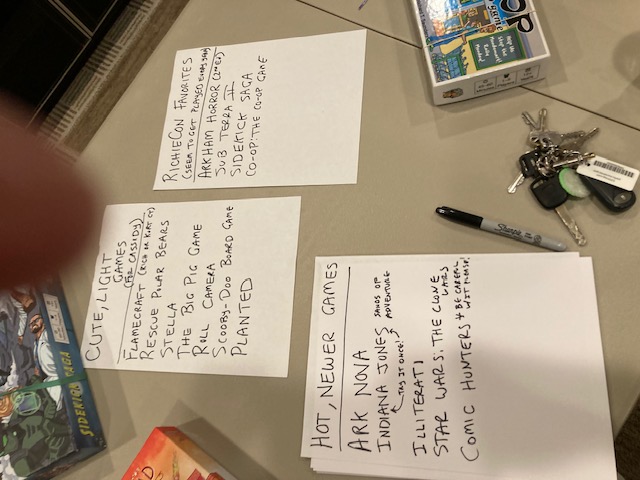 RICHIECON FAVORITES
(SEEM TO GET PLAYED EVERY YEAR)
ARKHAM HORROR (2ND ED)
SUB TERRA II
SIDEKICK SAGA
CO-OP: THE CO-OP GAME
CUTE, LIGHT
GAMES
(FOR CASSIDY)
FLAMECRAFT (RICH OR KURT CT)
RESCUE POLAR BEARS
STELLA
THE BIG PIG GAME
ROLL CAMERA
SCOOBY-DOO BOARD GAME
PLANTED
HOT, NEWER GAMES
ARK NOVA
INDIANA JONES SANDS OF
ADVENTURE
TRY IT ONCE!
ILLITERATI
STAR WARS: THE CLONE
WARS
COMIC HUNTERS
SIDEKICK SAGA
Sharpie
OP